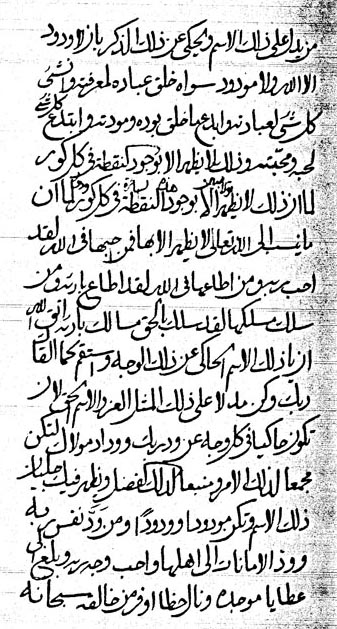 مزيدا على ذلك الاسم و الحكى عن ذلك الذكر بان لا ودود
الا الله ولا مودود سواه خلق عباده لمعرفته و
كل شئ لعبادته وابدع ما خلق بوده ومودته وابتدع كل شئ
لحبه ومحبته وذلك لا يظهر الا بوجود النقطة فى كل كور
لما ان ذلك لا يظهر الا بوجود النقطة فى كل كور ولما ان
ما ينسب الى الله تعالى لا يظهر الا بها فمن احبها فى الله لقد
احب ربه ومن اطاعها فى الله لقد اطاع بارئه ومن
سلك مسلكها لقد سلك بالحق مسالك بارئه اتق الله
ان يا ذلك الاسم الحاكى عن ذلك الوجه واستقم كما القاك
ربك وكن مدلا على ذلك المثل الفرد والاسم الحق لان
تكون حاكيا فى كل وجه عن ود ربك ووداد مولاك لتكن
مجمعا لذلك الامر ومنبعا لذلك الفضل ويظهر فيك
ذلك الاسم وتكن مودودا وودودا ومن ود نفس به
وود الامانات الى اهلها واحب وجه ربه وبلغ الى
عطايا موجده ونال حظا اوفر من خالقه سبحانه